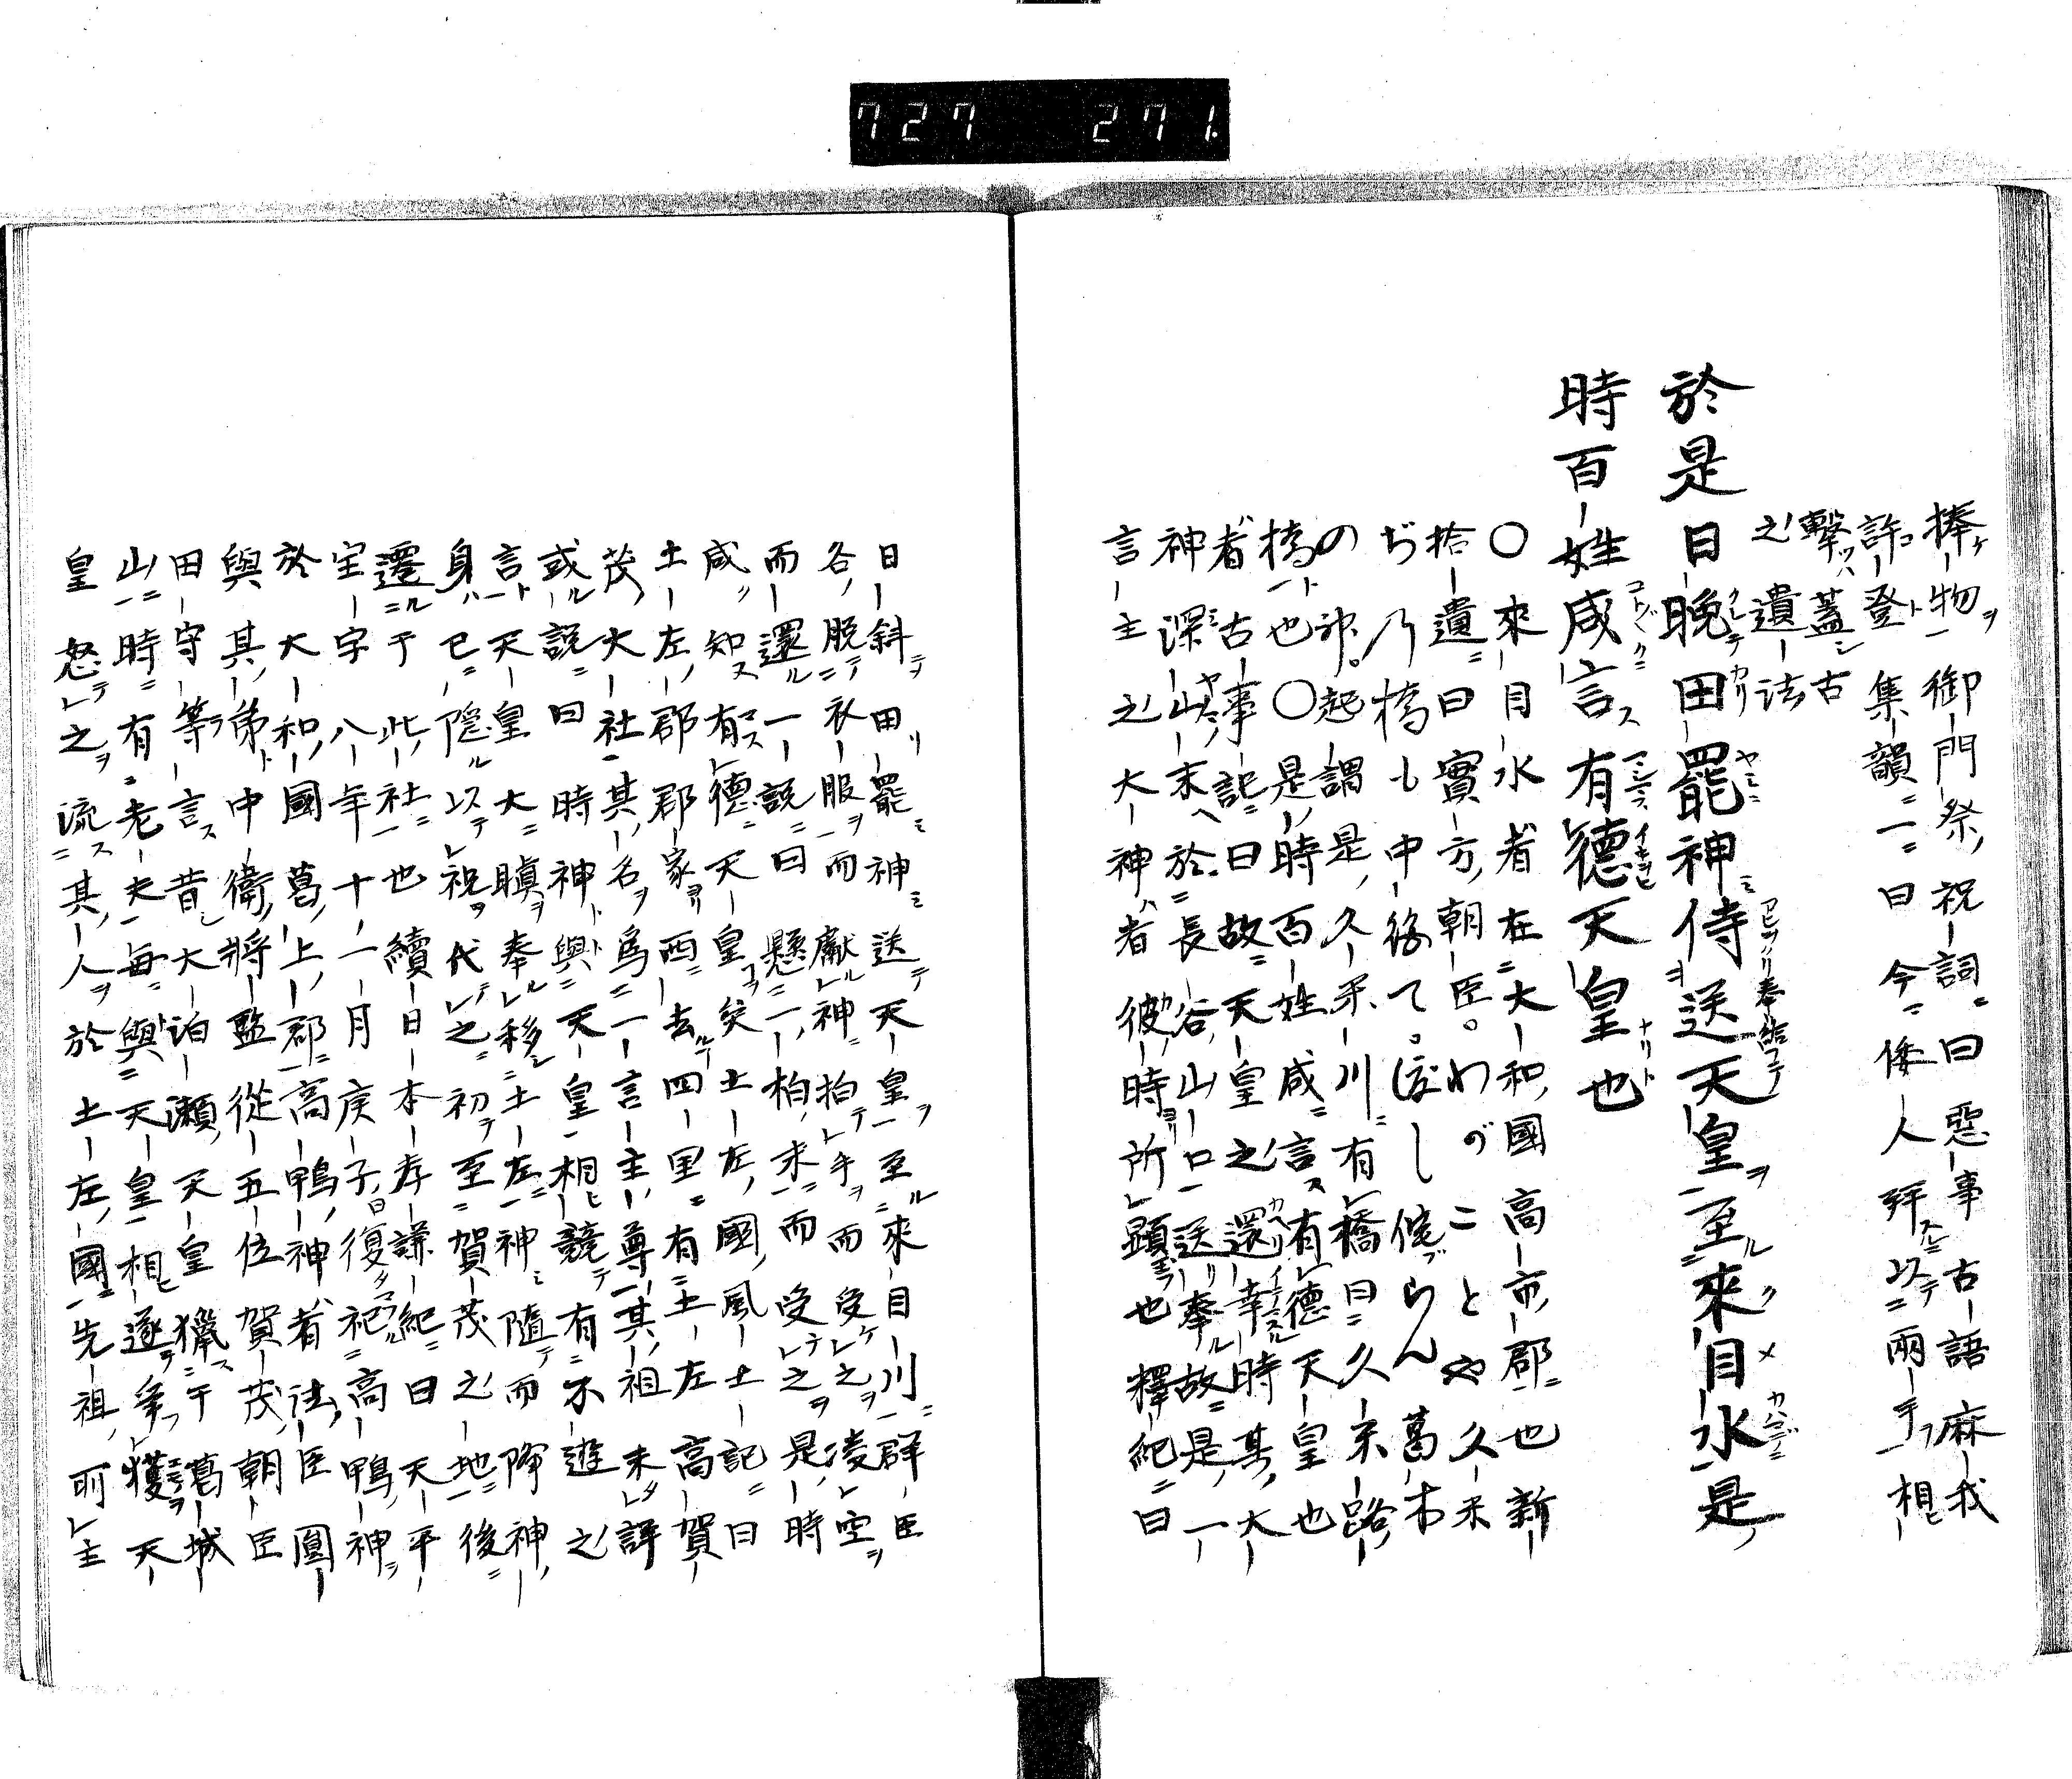 727 271.
捧物御門祭祝詞曰惡事古語麻我
許登集韻曰今倭人拜以兩手相
擊蓋古
之遺法
於是日晚田罷神侍送天皇至來目水是
時百姓咸言有德天皇也
〇來目水者在大和國高市郡也新
拾遺曰實方朝臣。わづことや久米
ぢ乃橋も中後て。渡し侘らん葛木
の神。起謂是久米川有橋曰久米路
橋也〇是時百姓咸言有德天皇也
者古事記曰故天皇之還幸時其大
神深山末於長谷山口送奉故是一
言主之大神者彼時所顯也釋紀曰
日斜田罷神送天皇至來目川群臣
各脫衣服而獻神拍手而受之凌空
而還一說曰懸一拍末而受之是時
咸知有德天皇矣土左國風土記曰
土左郡郡家西去四里有土左高賀
茂大社其名爲一言主尊其祖未詳
或說曰時神與天皇相競有不遜之
言天皇大瞋奉移土左神隨而降神
身已隱以祝代之初至賀茂之地後
遷于此社也續日本孝謙紀曰天平
宝字八年十一月庚子復祀高鴨神
於大和國葛上郡高鴨神者法臣圓
與其弟中衛將監從五位賀茂朝臣
田守等言昔大泊瀨天皇獵于葛城
山時有老夫每與天皇相逐爭獲天
皇怒之流其人於土左國先祖所主